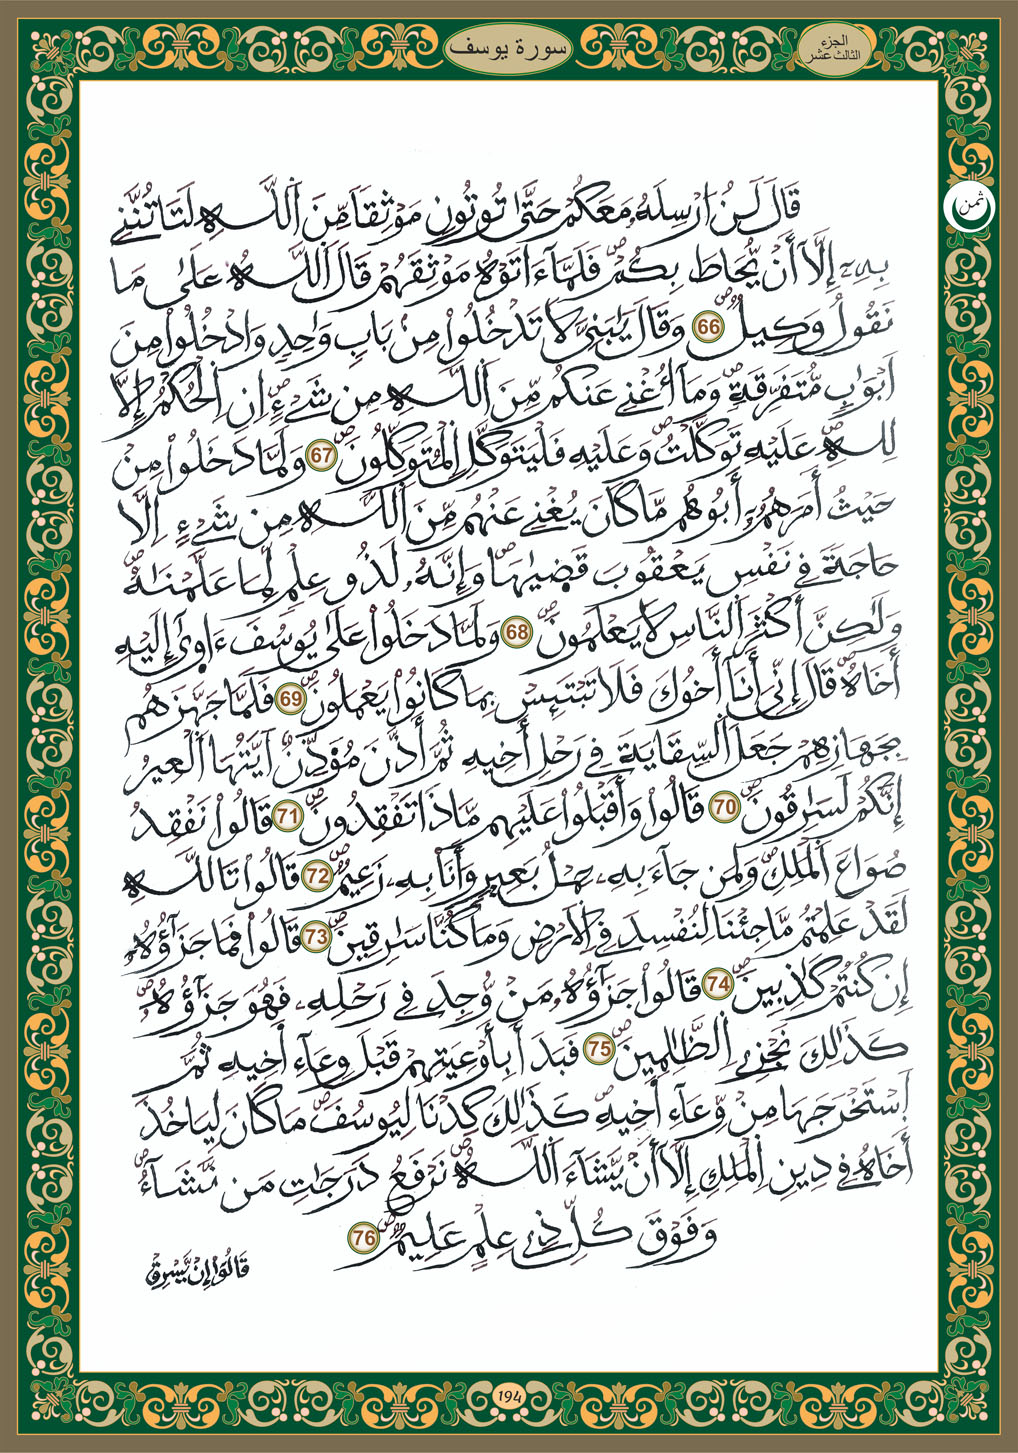 سورة يوسف
الجزء
الثالث عشر
ثمن
قَالَ لَنُ ا۟رْسِلَهُۥ مَعَكُمْ حَتَّىٰ تُوتُونِ مَوْثِقاٗ مِّنَ اَ۬للَّهِ لَتَاتُنَّنِے
بِهِۦٓ إِلَّآ أَنْ يُّحَاطَ بِكُمْۖ فَلَمَّآ ءَاتَوْهُ مَوْثِقَهُمْ قَالَ اَ۬للَّهُ عَلَىٰ مَا
نَقُولُ وَكِيلٞۖ 66 وَقَالَ يَٰبَنِيَّ لَا تَدْخُلُوا۟ مِنۢ بَابٖ وَٰحِدٖ وَادْخُلُوا۟ مِنَ
اَبْوَٰبٖ مُّتَفَرِّقَةٖۖ وَمَآ أُغْنِے عَنكُم مِّنَ اَ۬للَّهِ مِن شَےْءٍۖ اِنِ اِ۬لْحُكْمُ إِلَّا
لِلهِۖ عَلَيْهِ تَوَكَّلْتُۖ وَعَلَيْهِ فَلْيَتَوَكَّلِ اِ۬لْمُتَوَكِّلُونَۖ 67 وَلَمَّا دَخَلُوا۟ مِنْ
حَيْثُ أَمَرَهُمُۥٓ أَبُوهُم مَّا كَانَ يُغْنِے عَنْهُم مِّنَ اَ۬للَّهِ مِن شَےْءٍ اِلَّا
حَاجَةٗ فِے نَفْسِ يَعْقُوبَ قَضَىٰهَاۖ وَإِنَّهُۥ لَذُو عِلْمٖ لِّمَا عَلَّمْنَٰهُۖ
وَلَٰكِنَّ أَكْثَرَ اَ۬لنَّاسِ لَا يَعْلَمُونَۖ 68 وَلَمَّا دَخَلُوا۟ عَلَىٰ يُوسُفَ ءَاو۪ىٰٓ إِلَيْهِ
أَخَاهُۖ قَالَ إِنِّيَ أَنَآ أَخُوكَ فَلَا تَبْتَئِسْ بِمَا كَانُوا۟ يَعْمَلُونَۖ 69 فَلَمَّا جَهَّزَهُم
بِجَهَازِهِمْ جَعَلَ اَ۬لسِّقَايَةَ فِے رَحْلِ أَخِيهِ ثُمَّ أَذَّنَ مُؤَذِّنٌ اَيَّتُهَا اَ۬لْعِيرُ
إِنَّكُمْ لَسَٰرِقُونَۖ 70 قَالُوا۟ وَأَقْبَلُوا۟ عَلَيْهِم مَّاذَا تَفْقِدُونَۖ 71 قَالُوا۟ نَفْقِدُ
صُوَاعَ اَ۬لْمَلِكِۖ وَلِمَن جَآءَ بِهِۦ حِمْلُ بَعِيرٖ وَأَنَا بِهِۦ زَعِيمٞۖ 72 قَالُوا۟ تَاللَّهِ
لَقَدْ عَلِمْتُم مَّا جِئْنَا لِنُفْسِدَ فِے اِ۬لَارْضِ وَمَا كُنَّا سَٰرِقِينَۖ 73 قَالُوا۟ فَمَا جَزَٰٓؤُهُۥٓ
إِن كُنتُمْ كَٰذِبِينَۖ 74 قَالُوا۟ جَزَٰٓؤُهُۥ مَنْ وُّجِدَ فِے رَحْلِهِۦ فَهُوَ جَزَٰٓؤُهُۥۖ
كَذَٰلِكَ نَجْزِے اِ۬لظَّٰلِمِينَۖ 75 فَبَدَأَ بِأَوْعِيَتِهِمْ قَبْلَ وِعَآءِ اَخِيهِ ثُمَّ
اَ۪سْتَخْرَجَهَا مِنْ وِّعَآءِ اَخِيهِۖ كَذَٰلِكَ كِدْنَا لِيُوسُفَۖ مَا كَانَ لِيَاخُذَ
أَخَاهُ فِے دِينِ اِ۬لْمَلِكِ إِلَّآ أَنْ يَّشَآءَ اَ۬للَّهُۖ نَرْفَعُ دَرَجَٰتِ مَن نَّشَآءُۖ
وَفَوْقَ كُلِّ ذِے عِلْمٍ عَلِيمٞۖ 76
قَالُوٓا۟ إِنْ يَّسْرِقْ
194